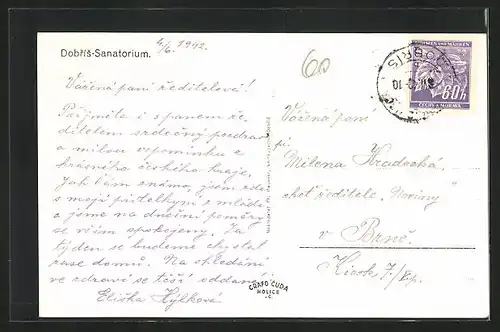 4/6. 1942.
Dobříš-Sanatorium.
60
Vážená paní ředitelová!
Přijměte i s panem ře-
ditelem srdečný pozdrav
a milou vzpomínku z
krásného českého kraje.
Jak Vám známo, jsem zde
s mojí přítelkyní z mládí
a jsme na dnešní poměry
se vším spokojeny. Za
týden se budeme chystat
zase domů. Na shledání
ve zdraví se těší oddaná
Eliška Hýlková
BÖHMEN UND MÄHREN
60h
ČECHY A MORAVA
DOBŘÍŠ
Vážená paní
pí.
Milena Hradecká,
choť ředitele "Noviny"
v Brně.
GRAFO ČUDA
HOLICE
i.Č.